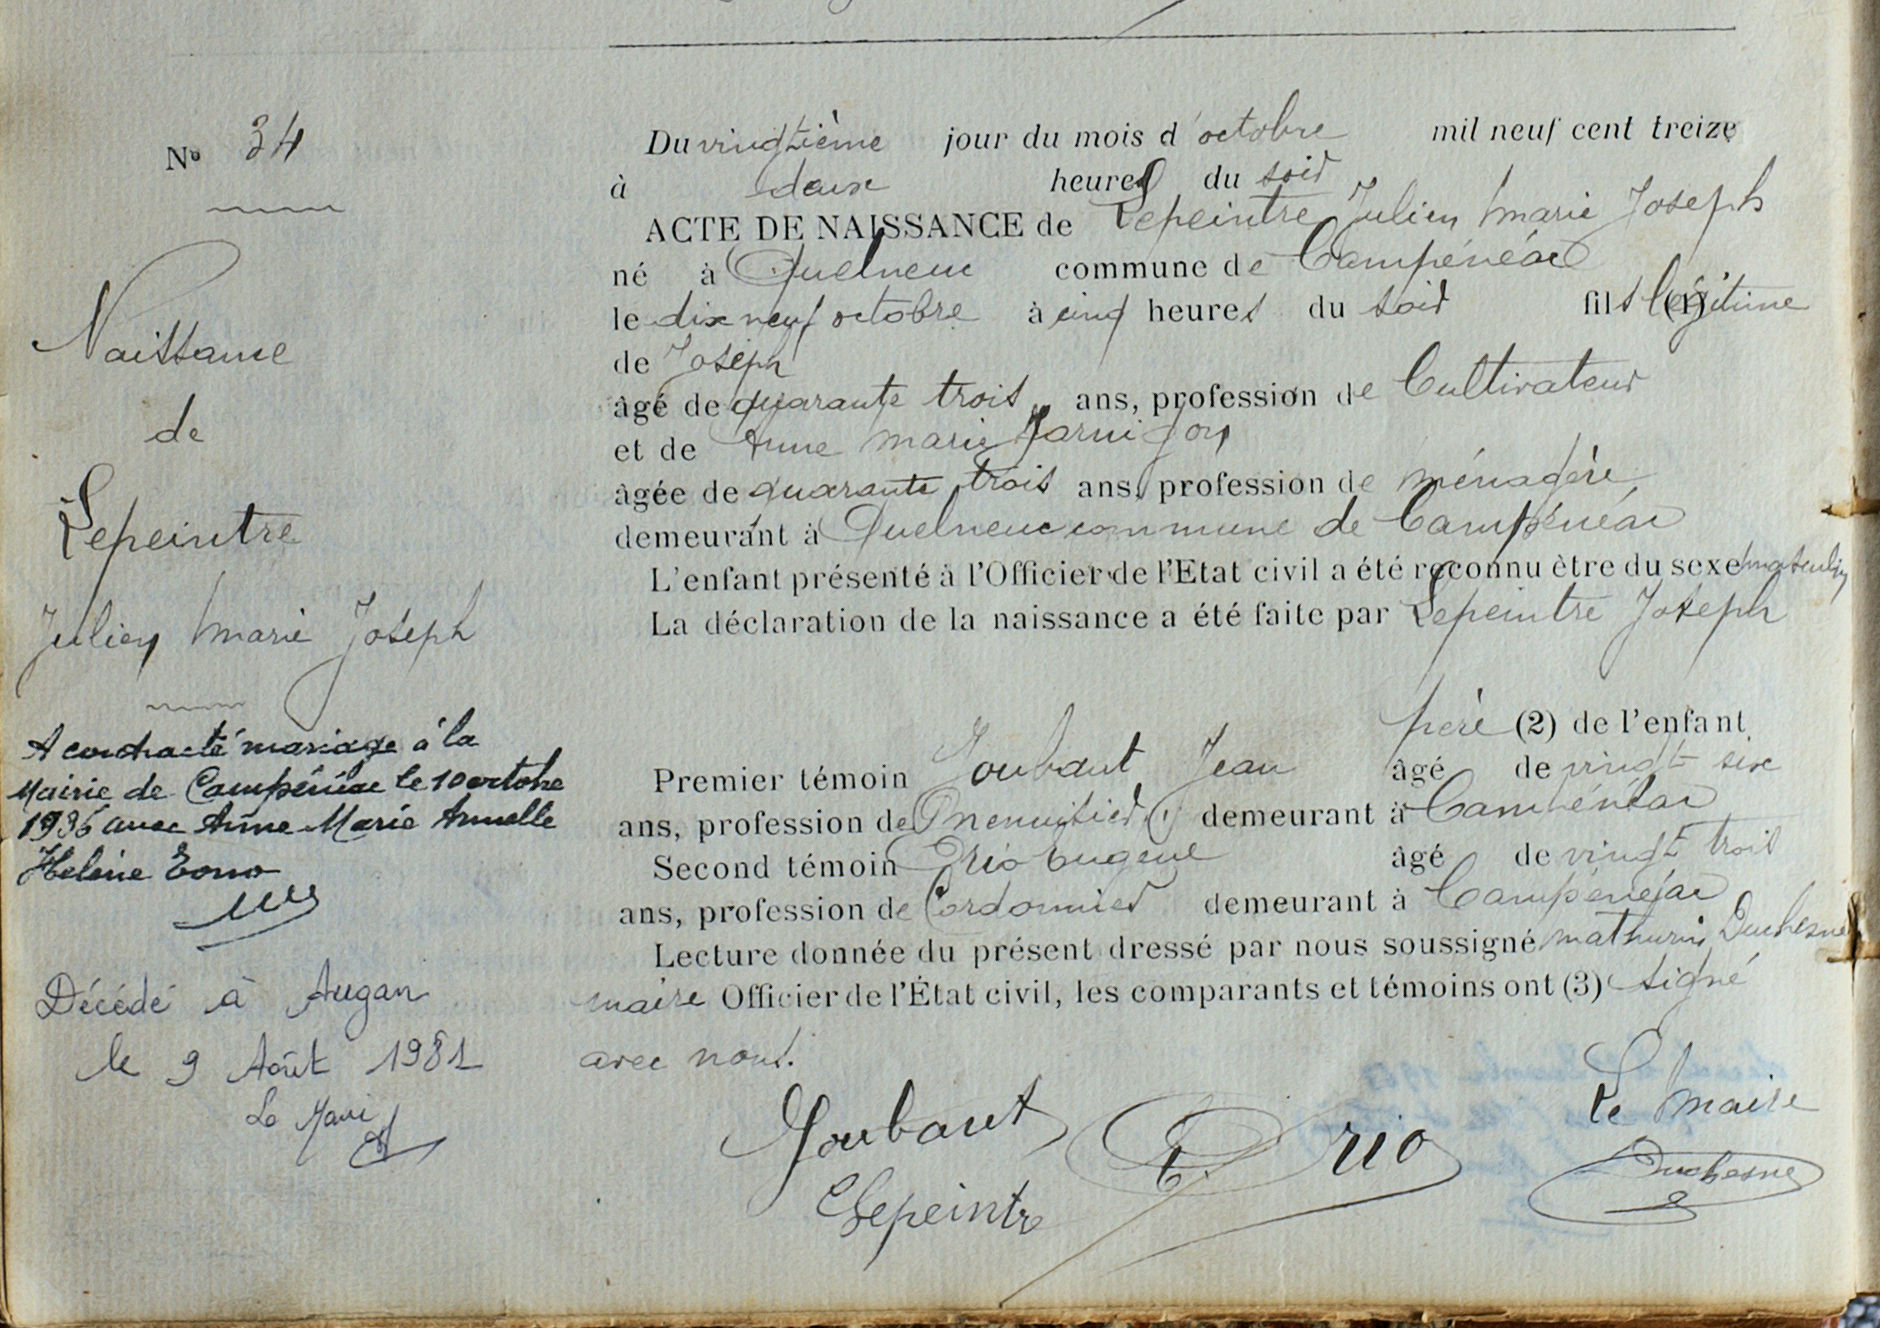 Nº 34
Naissance
de
Lepeintre
Julien Marie Joseph
A contracté mariage à la
Mairie de Campénéac le 10 octobre
1936 avec Anne Marie Armelle
Hélène Eono
Décédé à Augan
le 9 Août 1981
Le Maire
Du vingtième jour du mois d'octobre mil neuf cent treize
à deux heures du soir
ACTE DE NAISSANCE de Lepeintre Julien Marie Joseph
né à Quelneuc commune de Campénéac
le dix neuf octobre à cinq heures du soir fils (1) légitime
de Joseph
âgé de quarante trois ans, profession de Cultivateur
et de Anne Marie Jarnigon
âgée de quarante trois ans, profession de ménagère
demeurant à Quelneuc commune de Campénéac
L'enfant présenté à l'Officier de l'Etat civil a été reconnu être du sexe masculin
La déclaration de la naissance a été faite par Lepeintre Joseph
père (2) de l'enfant
Premier témoin Joubaut Jean âgé de vingt six
ans, profession de menuisier demeurant à Campénéac
Second témoin Orio Eugène âgé de vingt trois
ans, profession de Cordonnier demeurant à Campénéac
Lecture donnée du présent dressé par nous soussigné Mathurin Duchesne
maire Officier de l'État civil, les comparants et témoins ont (3) signé
avec nous.
Joubaut
E. Orio
Le Maire
Lepeintre
Duchesne